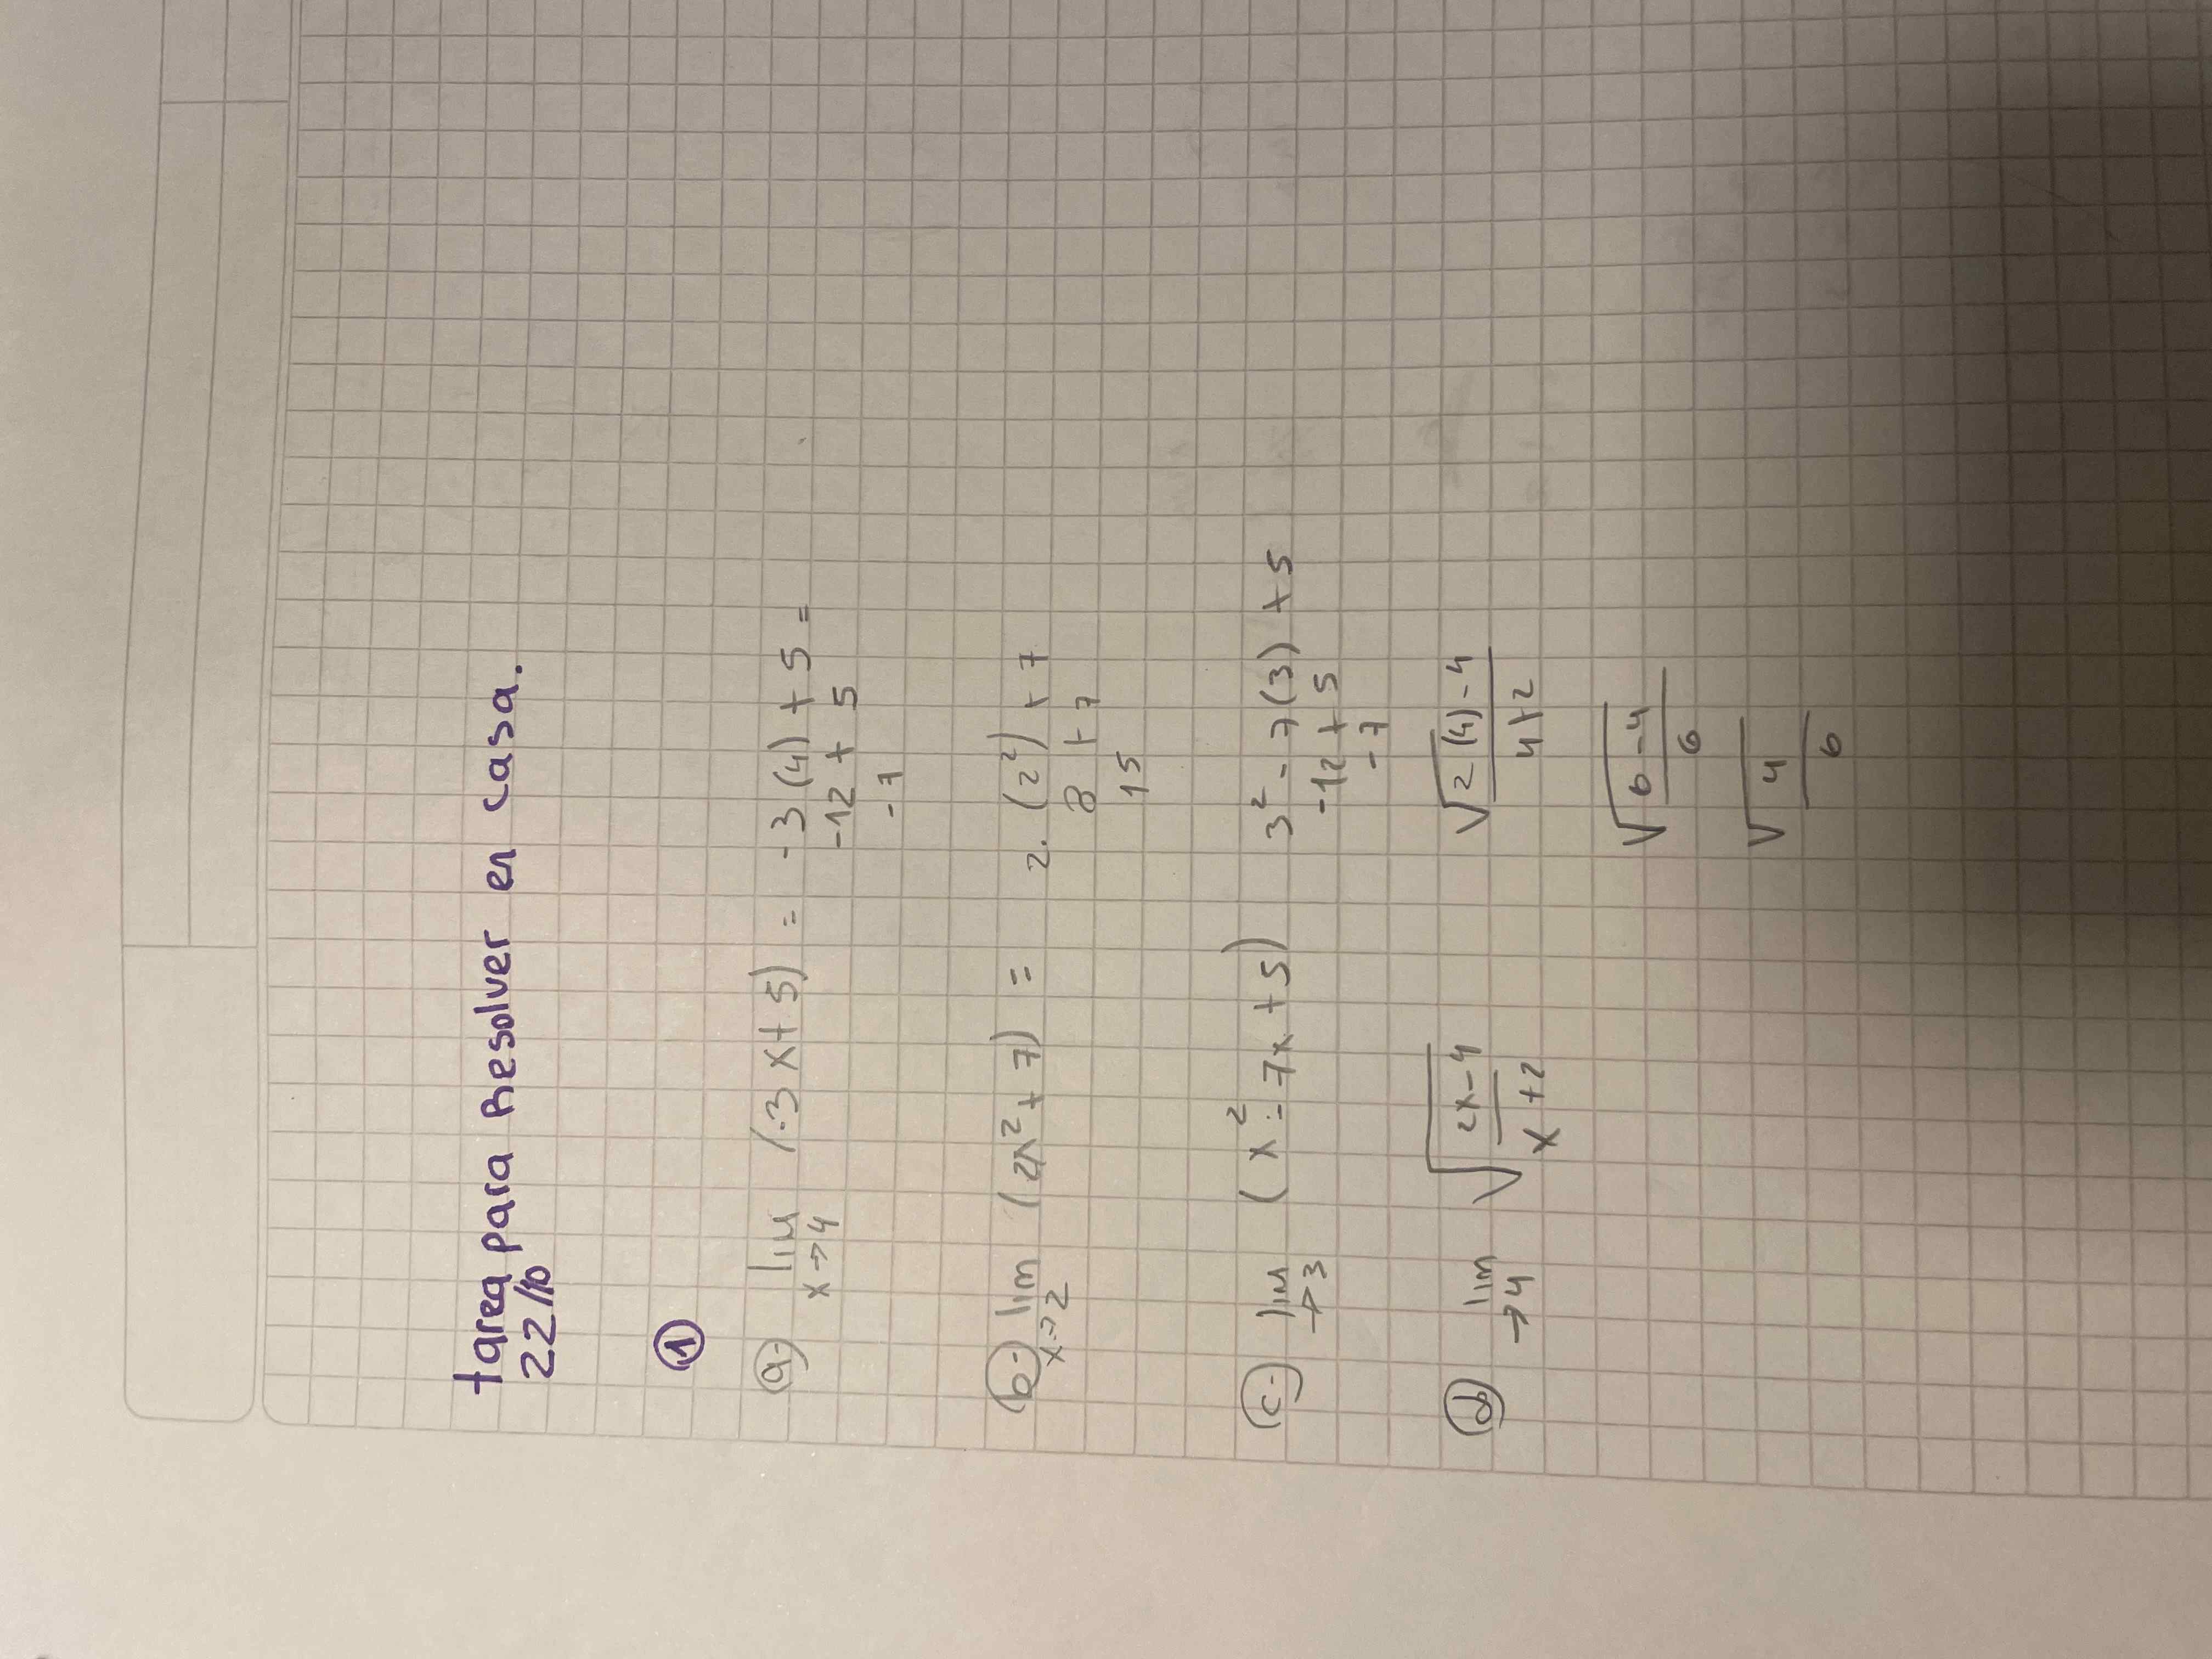 tarea para Resolver en casa.
22/10
①
a- lim (-3x+5) = -3(4)+5=
x→4 -12+5
-7
b- lim (2x²+7) = 2.(2²)+7
x→2 8+7
15
c- lim (x²-7x+5) 3²-7(3)+5
→3 -12+5
-7
d lim √(2x-4 / x+2) √(2(4)-4 / 4+2)
→4
√(6-4 / 6)
√(4 / 6)